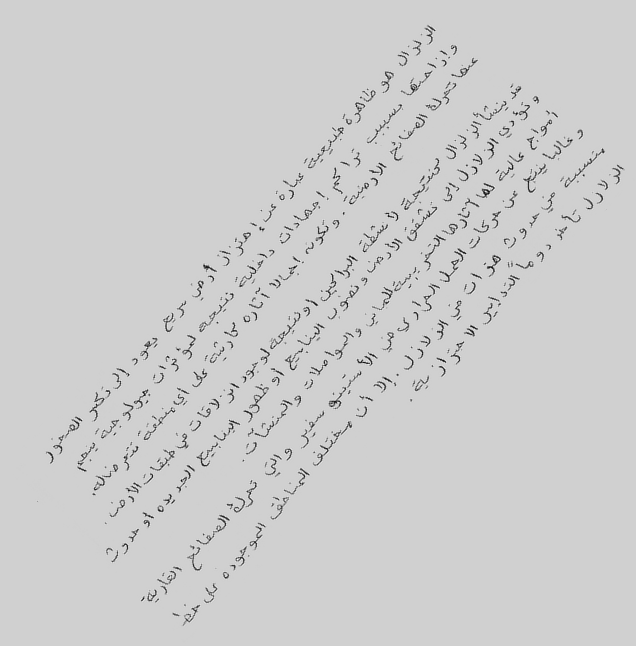 الزلزال هو ظاهرة طبيعية عبارة عن إهتزاز أرضي سريع يعود إلى تكسر الصخور
وإزاحتها بسبب تراكم إجهادات داخلية نتيجة لمؤثرات جيولوجية ينجم
عنها تحرك الصفائح الأرضية. وتكون إجمالا آثاره كارثية على أي منطقة تتعرض له.
قد ينشأ الزلزال كنتيجة لأنشطة البراكين أو نتيجة لوجود انزلاقات في طبقات الأرض.
وتؤدي الزلازل إلى تشقق الأرض ونضوب الينابيع أو ظهور الينابيع الجديده أو حدوث
أمواج عالية لها آثارها التخريبية للمباني والمواصلات والمنشآت.
وغالبا ينتج عن حركات الحمل الحراري في الأستينو سفير والتي تحرك الصفائح القارية
متسببة في حدوث هزات من الزلازل. إلا أن مختلف المناطق الموجوده على خط
الزلازل تأخذ دوماً التدابير الاحترازية.